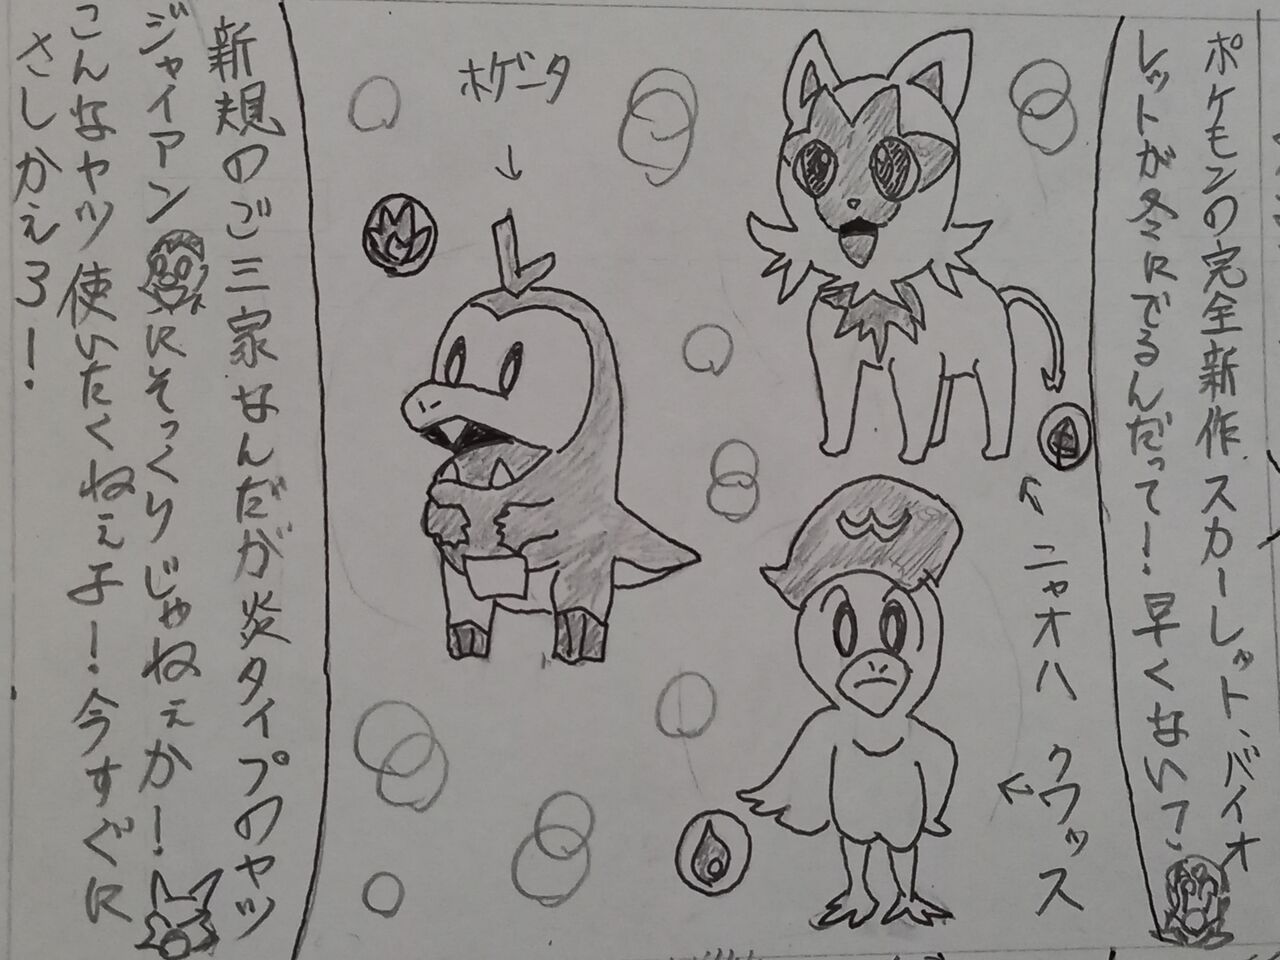 ポケモンの完全新作スカーレット・バイオ
レットが冬にでるんだって！早くない？
ニャオハ
クワッス
ホゲータ
新規のご三家なんだが炎タイプのヤツ
ジャイアンにそっくりじゃねぇか！
こんなヤツ使いたくねぇよ！今すぐに
さしかえろ！